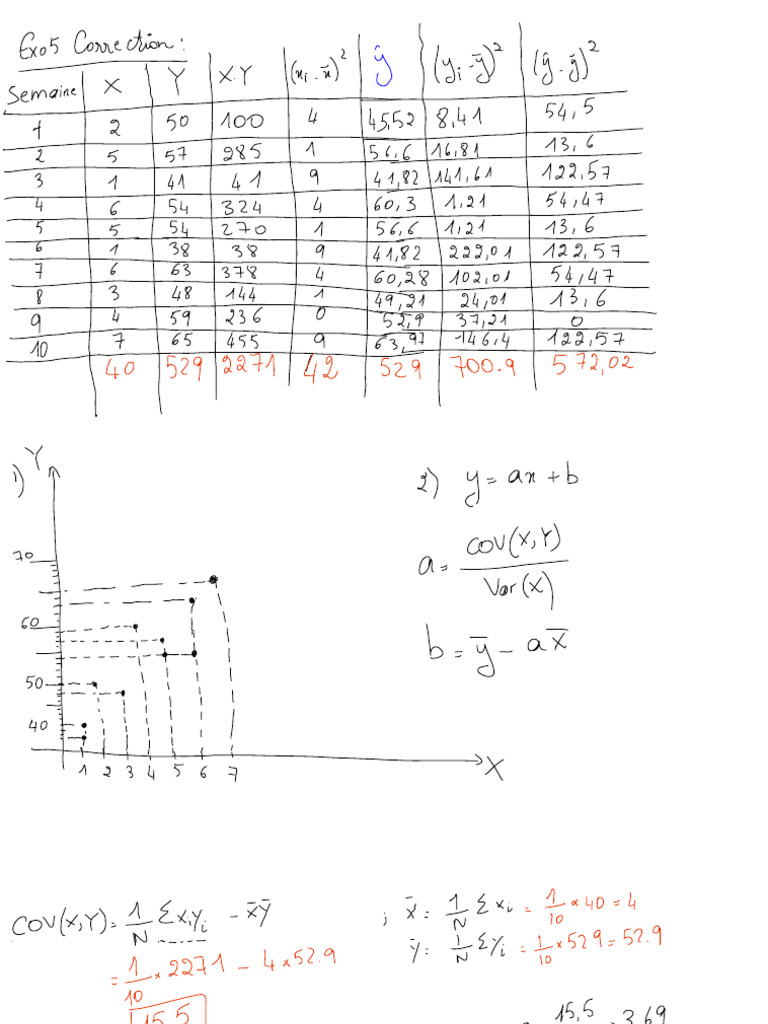 Exo5 Correction:
Semaine X Y X.Y (xi - x̄)² ŷ (yi - ȳ)² (ŷ - ȳ)²
1 2 50 100 4 45,52 8,41 54,5
2 5 57 285 1 56,6 16,81 13,6
3 1 41 41 9 41,82 141,61 122,57
4 6 54 324 4 60,3 1,21 54,47
5 5 54 270 1 56,6 1,21 13,6
6 1 38 38 9 41,82 222,01 122,57
7 6 63 378 4 60,28 102,01 54,47
8 3 48 144 1 49,21 24,01 13,6
9 4 59 236 0 52,9 37,21 0
10 7 65 455 9 63,97 146,4 122,57
40 529 2271 42 529 700.9 572,02
1) Y
2) y = ax + b
70
a = COV(X,Y) / Var(X)
60
b = ȳ - ax̄
50
40
1 2 3 4 5 6 7 X
COV(X,Y) = 1/N Σxiyi - x̄ȳ ; x̄ = 1/N Σxi = 1/10 × 40 = 4
= 1/10 × 2271 - 4 × 52.9 ȳ = 1/N Σyi = 1/10 × 529 = 52.9
15,5 15,5 3,69